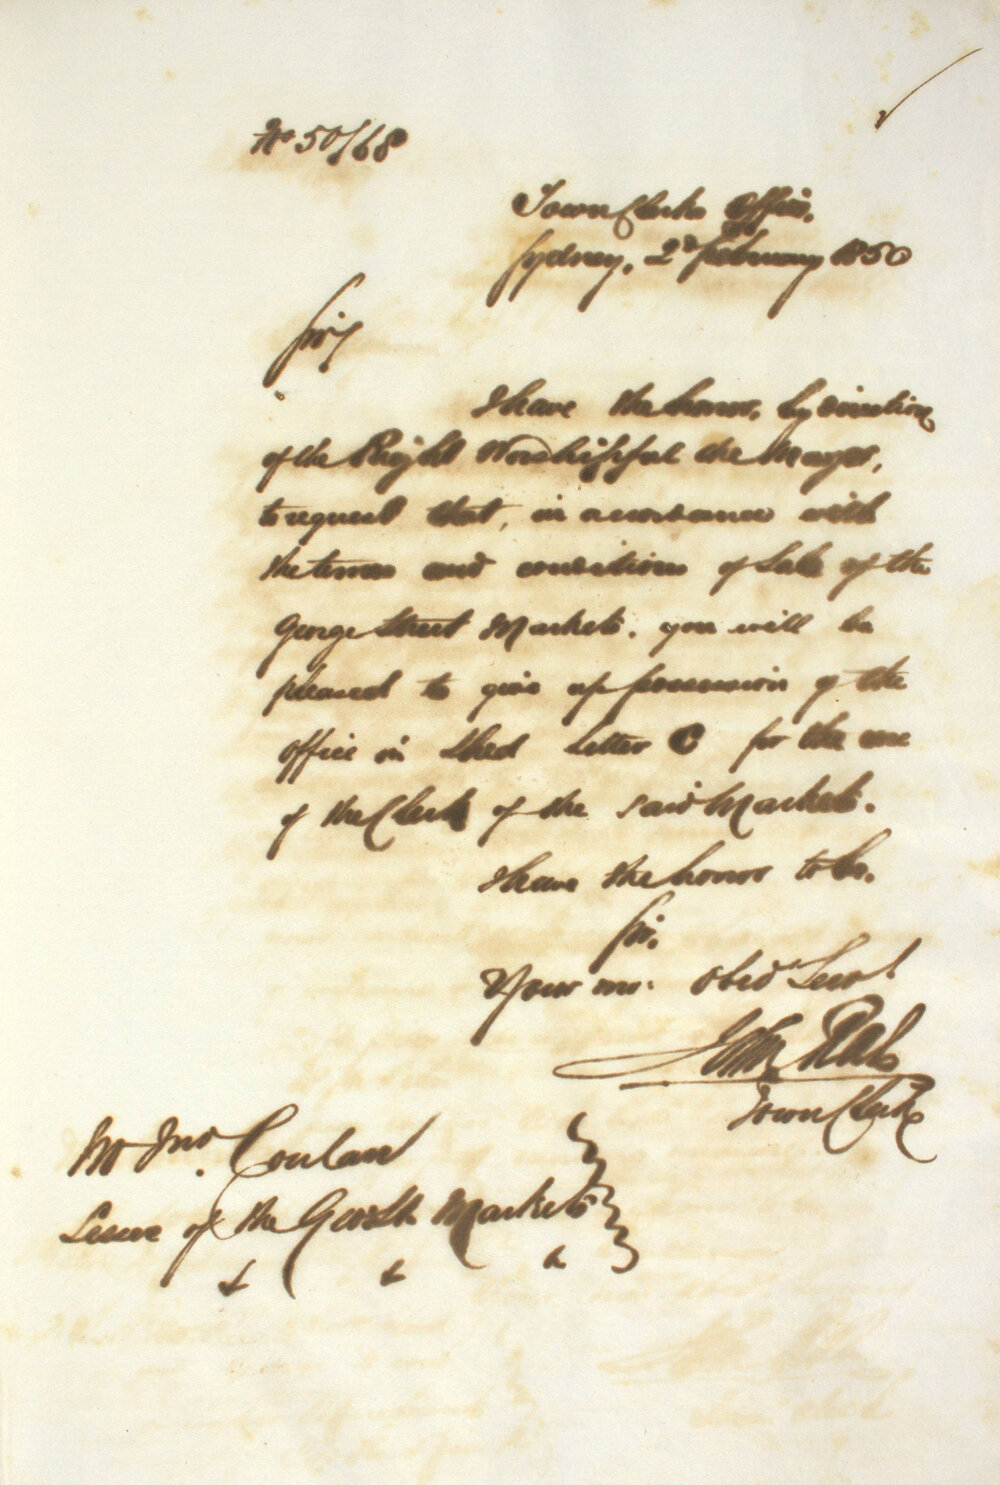 No 50/68
Town Clerks Office,
Sydney, 2d February 1850
Sir,
I have the honor, by direction
of the Right Worshipful the Mayor,
to request that, in accordance with
the terms and conditions of Sale of the
George Street Markets, you will be
pleased to give up possession of the
office in Shed Letter C for the use
of the Clerk of the said Markets.
I have the honor to be,
Sir,
Your mo. Obed Servt
John Rae
Town Clerk
Mr Jno. Conlan
Lessee of the Geo St. Markets